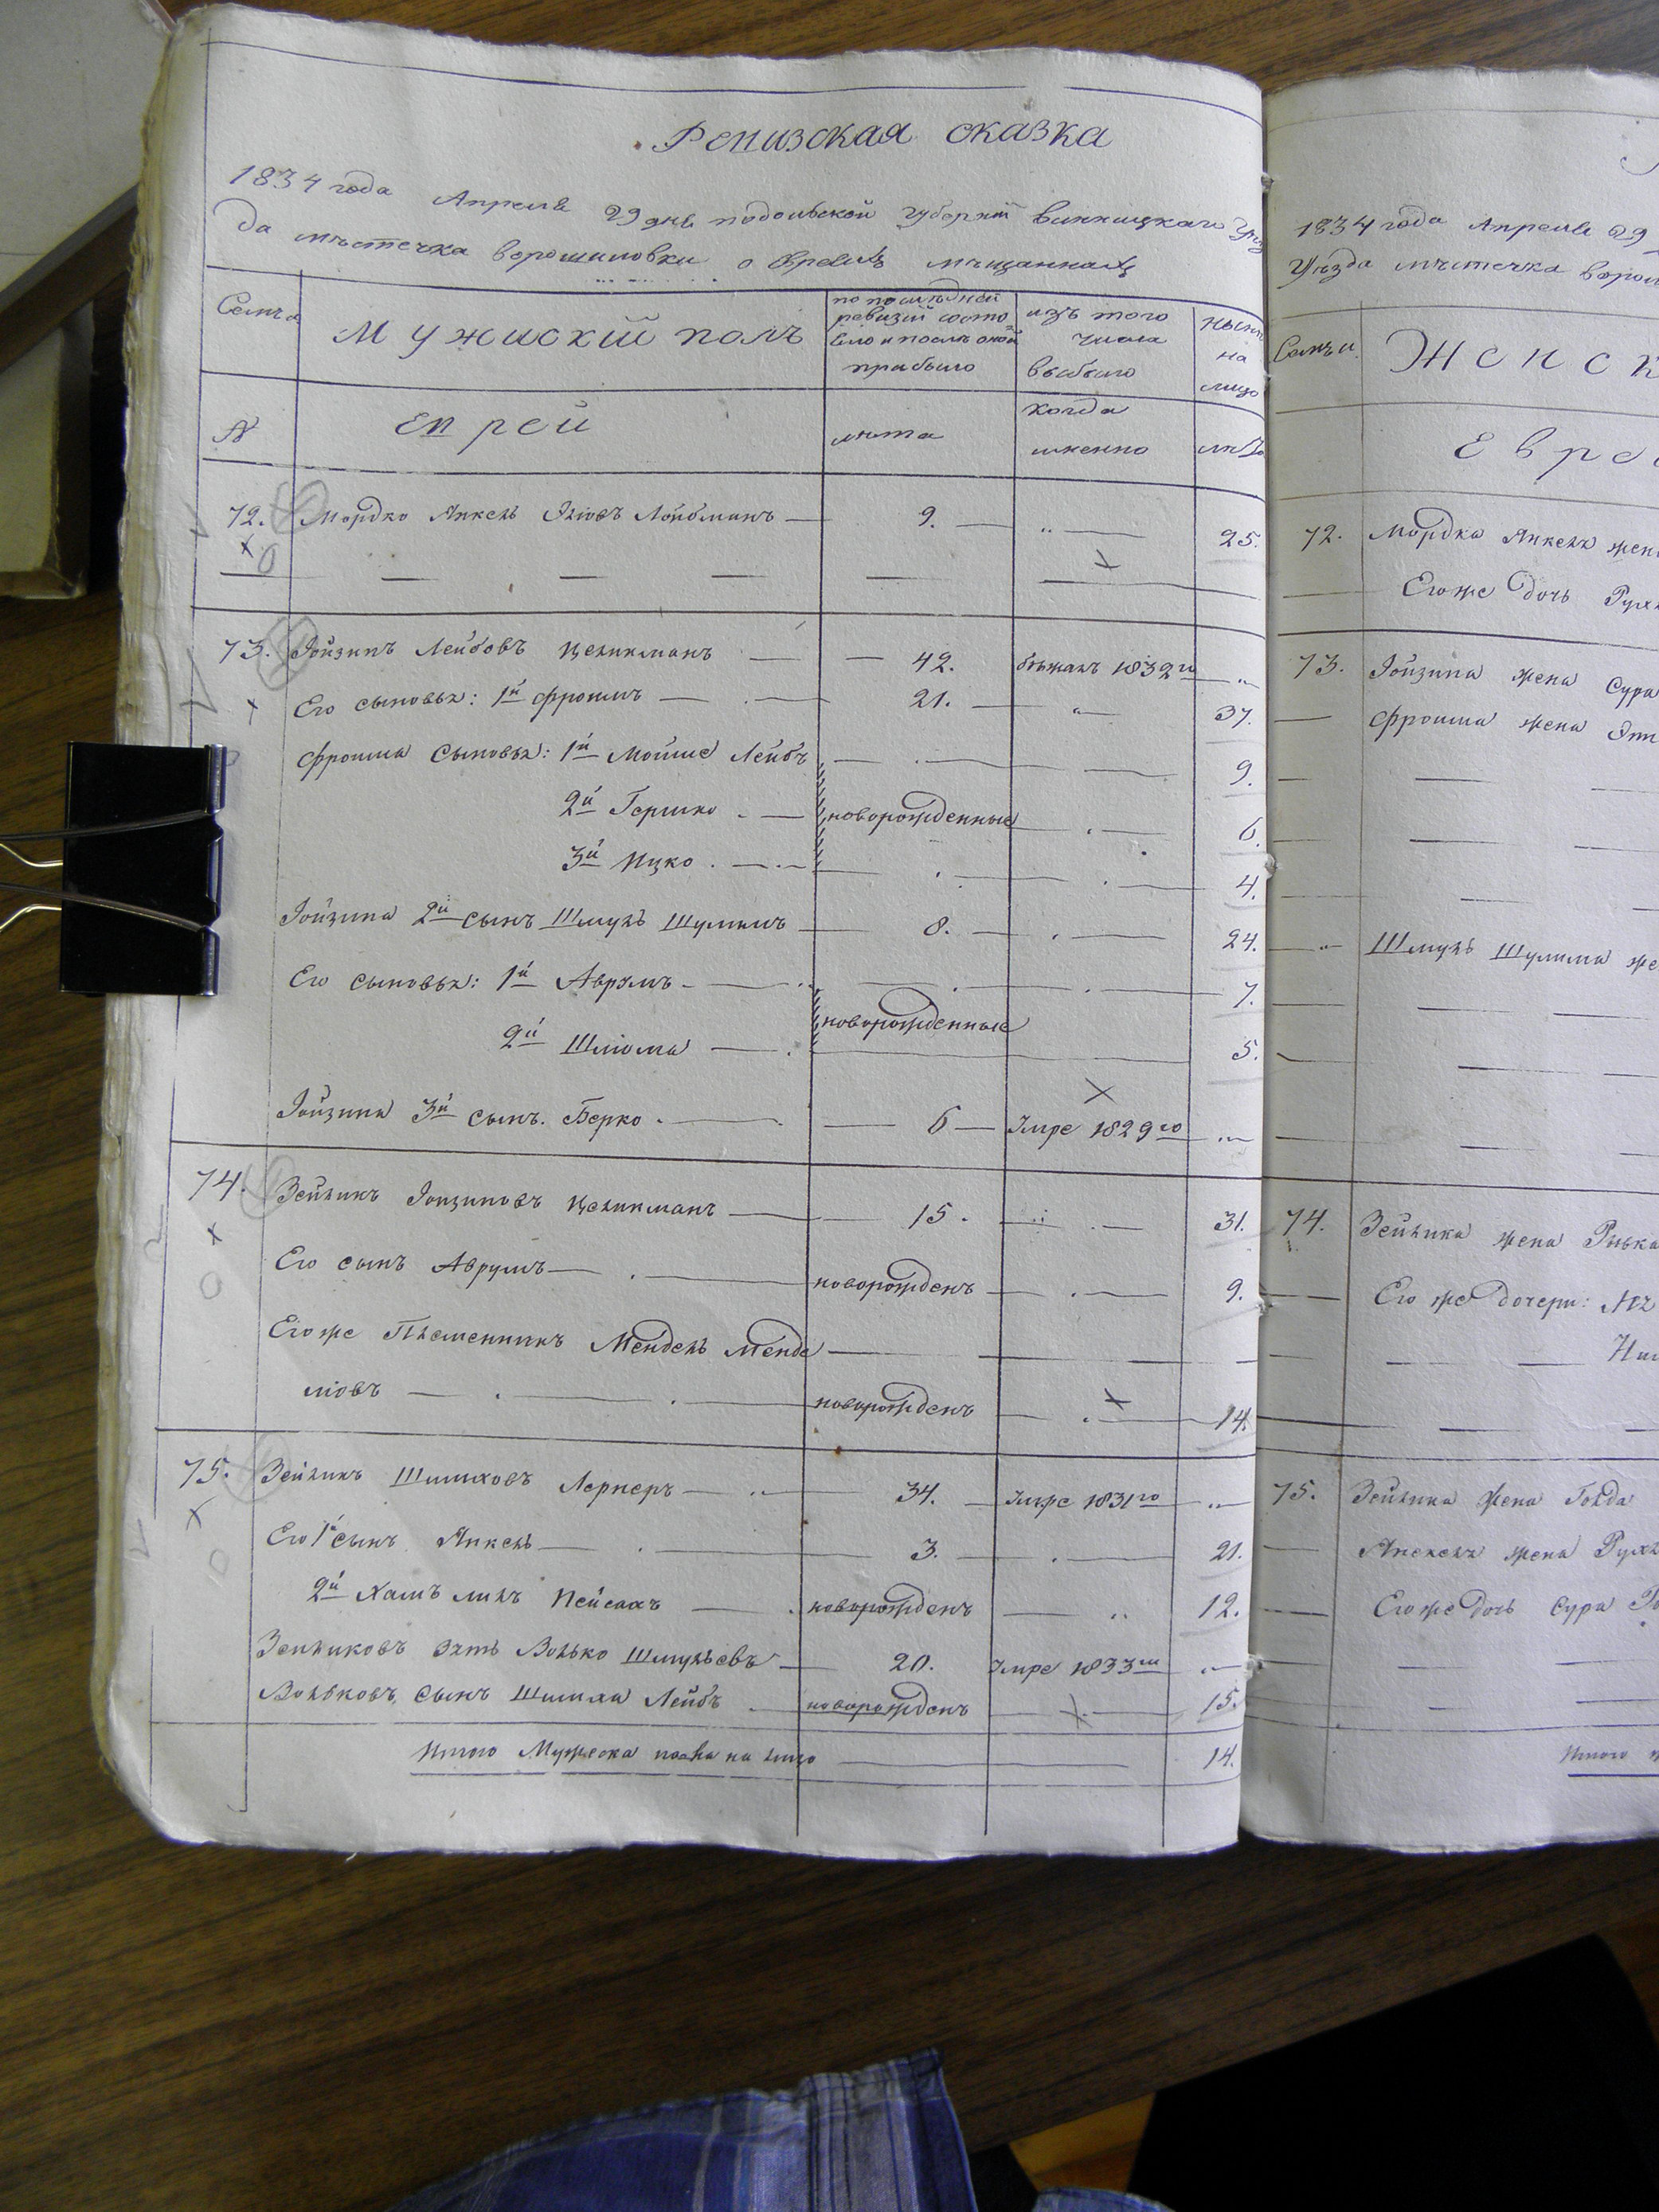 Ревизская сказка
1834 года Апреля 29 дня подольской губернии винницкаго уез
да мѣстечка ворошиловки о Евреяхъ мѣщанахъ
Семья
Мужискій полъ
по послѣдней ревизіи состояло и послѣ оной прибыло
изъ того числа выбыло
ныне на лицо
№
Еврей
лѣта
когда именно
лѣта
72. Мордко Янкель Лейбманъ 9. „ 25.
73. Іойзипъ Лейбовъ Целикманъ 42. бѣжалъ 1832го „
Его сыновья: 1й Фроимъ 21. „ 37.
Фроима сыновья: 1й Мошке Лейбъ 9.
2й Гершко новорожденные 6.
3й Ицко 4.
Іойзипа 2й сынъ Шмуль Шулимъ 8. 24.
Его сыновья: 1й Аврумъ 7.
новорожденные
2й Шліома 5.
Іойзипа 3й сынъ Берко 6 Умре 1829го „
74. Зейликъ Іойзиповъ Целикманъ 15. 31.
Его сынъ Аврумъ новорожденъ 9.
Его же Племенникъ Мендель Менде
ліовъ новорожденъ 14.
75. Зейликъ Шлиховъ Лернеръ 34. Умре 1831го „
Его 1й сынъ Янкель 3. 21.
2й Хаимъ Пейсахъ новорожденъ 12.
Зейликовъ зять Волько Шмульевъ 20. Умре 1833го „
Вольковъ сынъ Лейбъ новорожденъ 15.
Итого Мужеска пола на лицо 14.
1834 года Апреля 29
Уѣзда мѣстечка ворош
Семьи
Женск
Евре
72. Мордка Янкеля жен
Его же дочь Рух
73. Іойзипа жена Сура
Фроима жена
Шмуля Шулима же
74. Зейлика жена Ривка
Его же дочери:
75. Зейлика жена Голда
Янкеля жена Рух
Его же дочь Сура
Итого